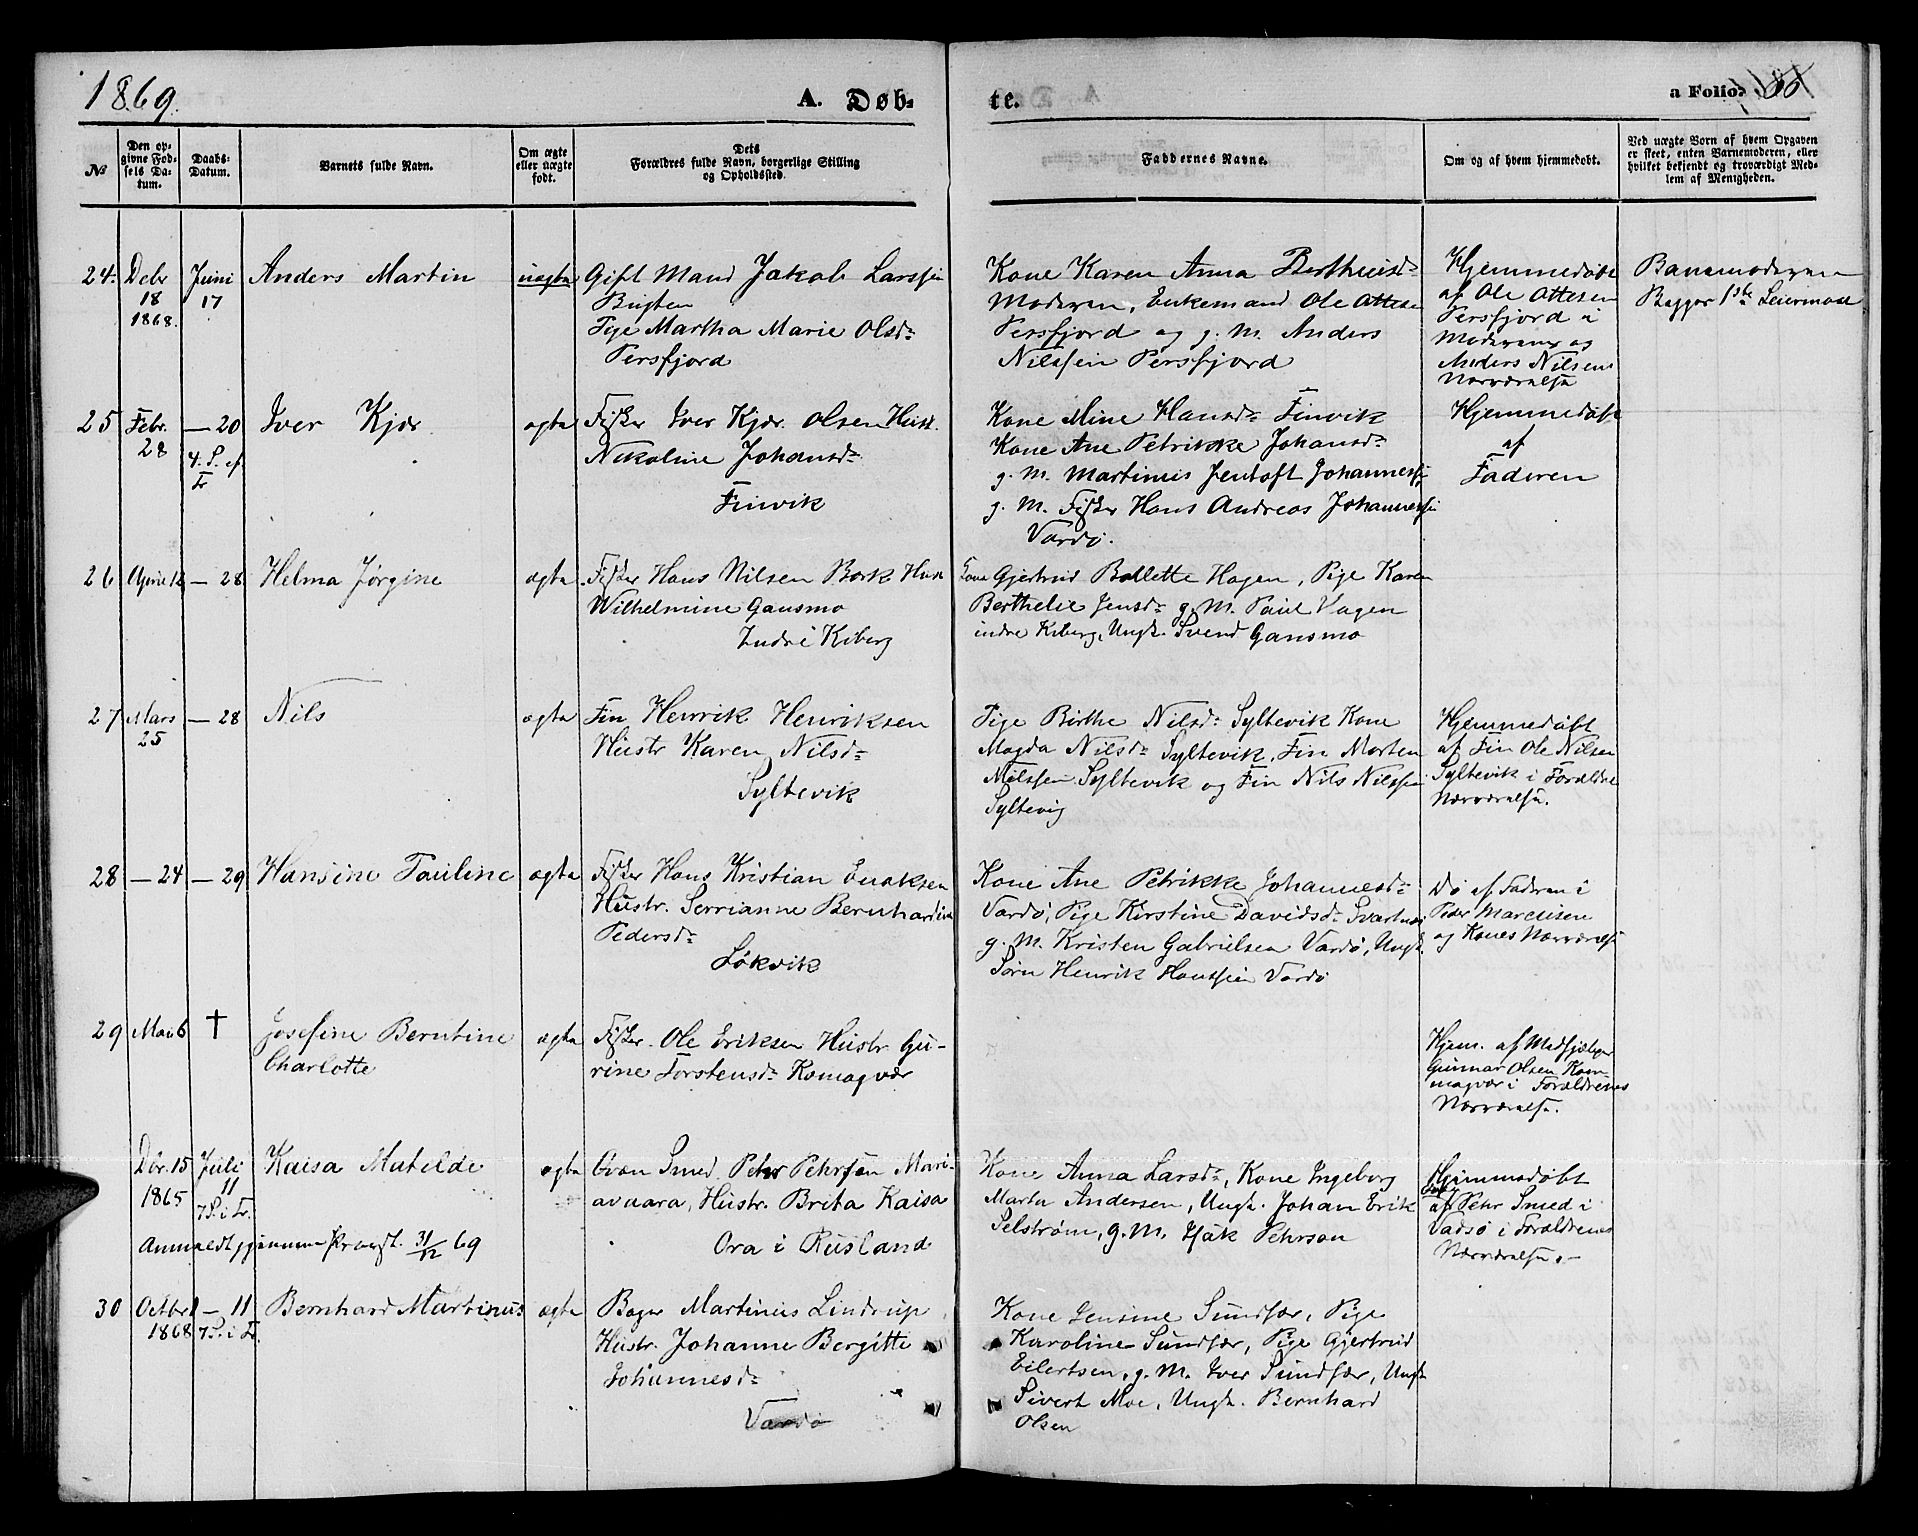 1869.
A. Døb-
te.
a Folio. 80
№
Den opgivne Fødsels Datum.
Daabs-Datum.
Barnets fulde Navn.
Om ægte eller uægte født.
Dets Forældres fulde Navn, borgerlige Stilling og Opholdssted.
Faddernes Navne.
Om og af hvem hjemmedøbt.
Ved uægte Børn af hvem Opgaven er skeet, enten Barnemoderen, eller hvilket bekjendt og troværdigt Medlem af Menigheden.
24.
Debr
18
1868.
Juni
17
Anders Martin
uægta
Gift Mand Jakob Larssen
Bugten
Pige Martha Marie Olsd.
Persfjord
Kone Karen Anna Berthusd.
Moderen, Enkemand Ole Ottesen
Persfjord og g. M. Anders
Nilssen Persfjord
Hjemmedøbt
af Ole Ottesen
Persfjord i
Moderens og
Anders Nilsens
Nærværelse
Barnemoderen
Begges 1ste Leiermaal
25
Febr.
28
— 20
4. S. ef
Tr
Iver Kjær
ægta
Fisker Iver Kjær Olsen Hust.
Nikoline Johansd.
Finvik
Kone Mine Hansd. Finvik
Kone Ane Petrikke Johansd.
g. M. Martinus Jentoft Johannessen
g. M. Fisker Hans Andreas Johannessen
Vardø.
Hjemmedøbt
af
Faderen
26
April 12
— 28
Helma Jørgine
ægta
Fisker Hans Nilsen Bork Hust
Wilhelmine Gansmo
Indre Kiberg
Kone Gjertrud Bollette Hagen, Pige Karen
Berthelie Jensd. g. M. Paul Hagen
indre Kiberg, Ungk. Svend Gansmo
27
Mars
25
— 28
Nils
ægta
Fin Henrik Henriksen
Hustr Karen Nilsd.
Syltevik
Pige Birthe Nilsd. Syltevik Kone
Magda Nilsd. Syltevik, Fin Morten
Nilssen Syltevik og Fin Nils Nilssen
Syltevig
Hjemmedøbt
af Fin Ole Nilsen
Syltevik i Forældre
Nærværelse.
28
— 24
— 29
Hansine Pauline
ægta
Fisker Hans Kristian Enoksen
Hustr. Serrianne Bernhardine
Pedersd.
Løkvik
Kone Ane Petrikke Johannesd.
Vardø, Pige Kirstine Davidsd. Svartnes
g. M. Kristen Gabrielsen Vardø, Ungk.
Sørn Henrik Hanssen Vardø
Do af Faderen i
Peder Marcusen
og Kones Nærværelse
29
Mai 6
†
Josefine Berntine
Charlotte
ægta
Fisker Ole Eriksen Hustr. Gu-
rine Torstensd. Komagvær
Hjem. af Medhjælper
Gunnar Olsen Kom-
magvær i Forældrenes
Nærværelse.
Dbr. 15
1865
Juli
11
7 S. i Tr.
Kaisa Matilde
ægta
Smed Pehr Pehrsen Mari-
avaara, Hustr. Brita Kaisa
Ora i Rusland
Anmeldt gjennem Provst. 31/12 69
Kone Anna Larsd., Kone Ingeborg
Marta Andersen, Ungk. Johan Erik
Selstrøm, g. M. Isak Pehrson
Hjemmedøbt
af Pehr Smed i
Vadsø i Forældrenes
Nærværelse. —
30
Octbr 1
1868
— 11
7 S. i Tr.
Bernhard Martinus
ægta
Bager Martinus Lindrup
Hustr. Johanne Bergitte
Johannesd.
Vardø
Kone Jensine Sundfær, Pige
Karoline Sundfær, Pige Gjertrud
Eilertsen, g. M. Iver Sundfær, Ungk
Sivert Moe, Ungk. Bernhard
Olsen